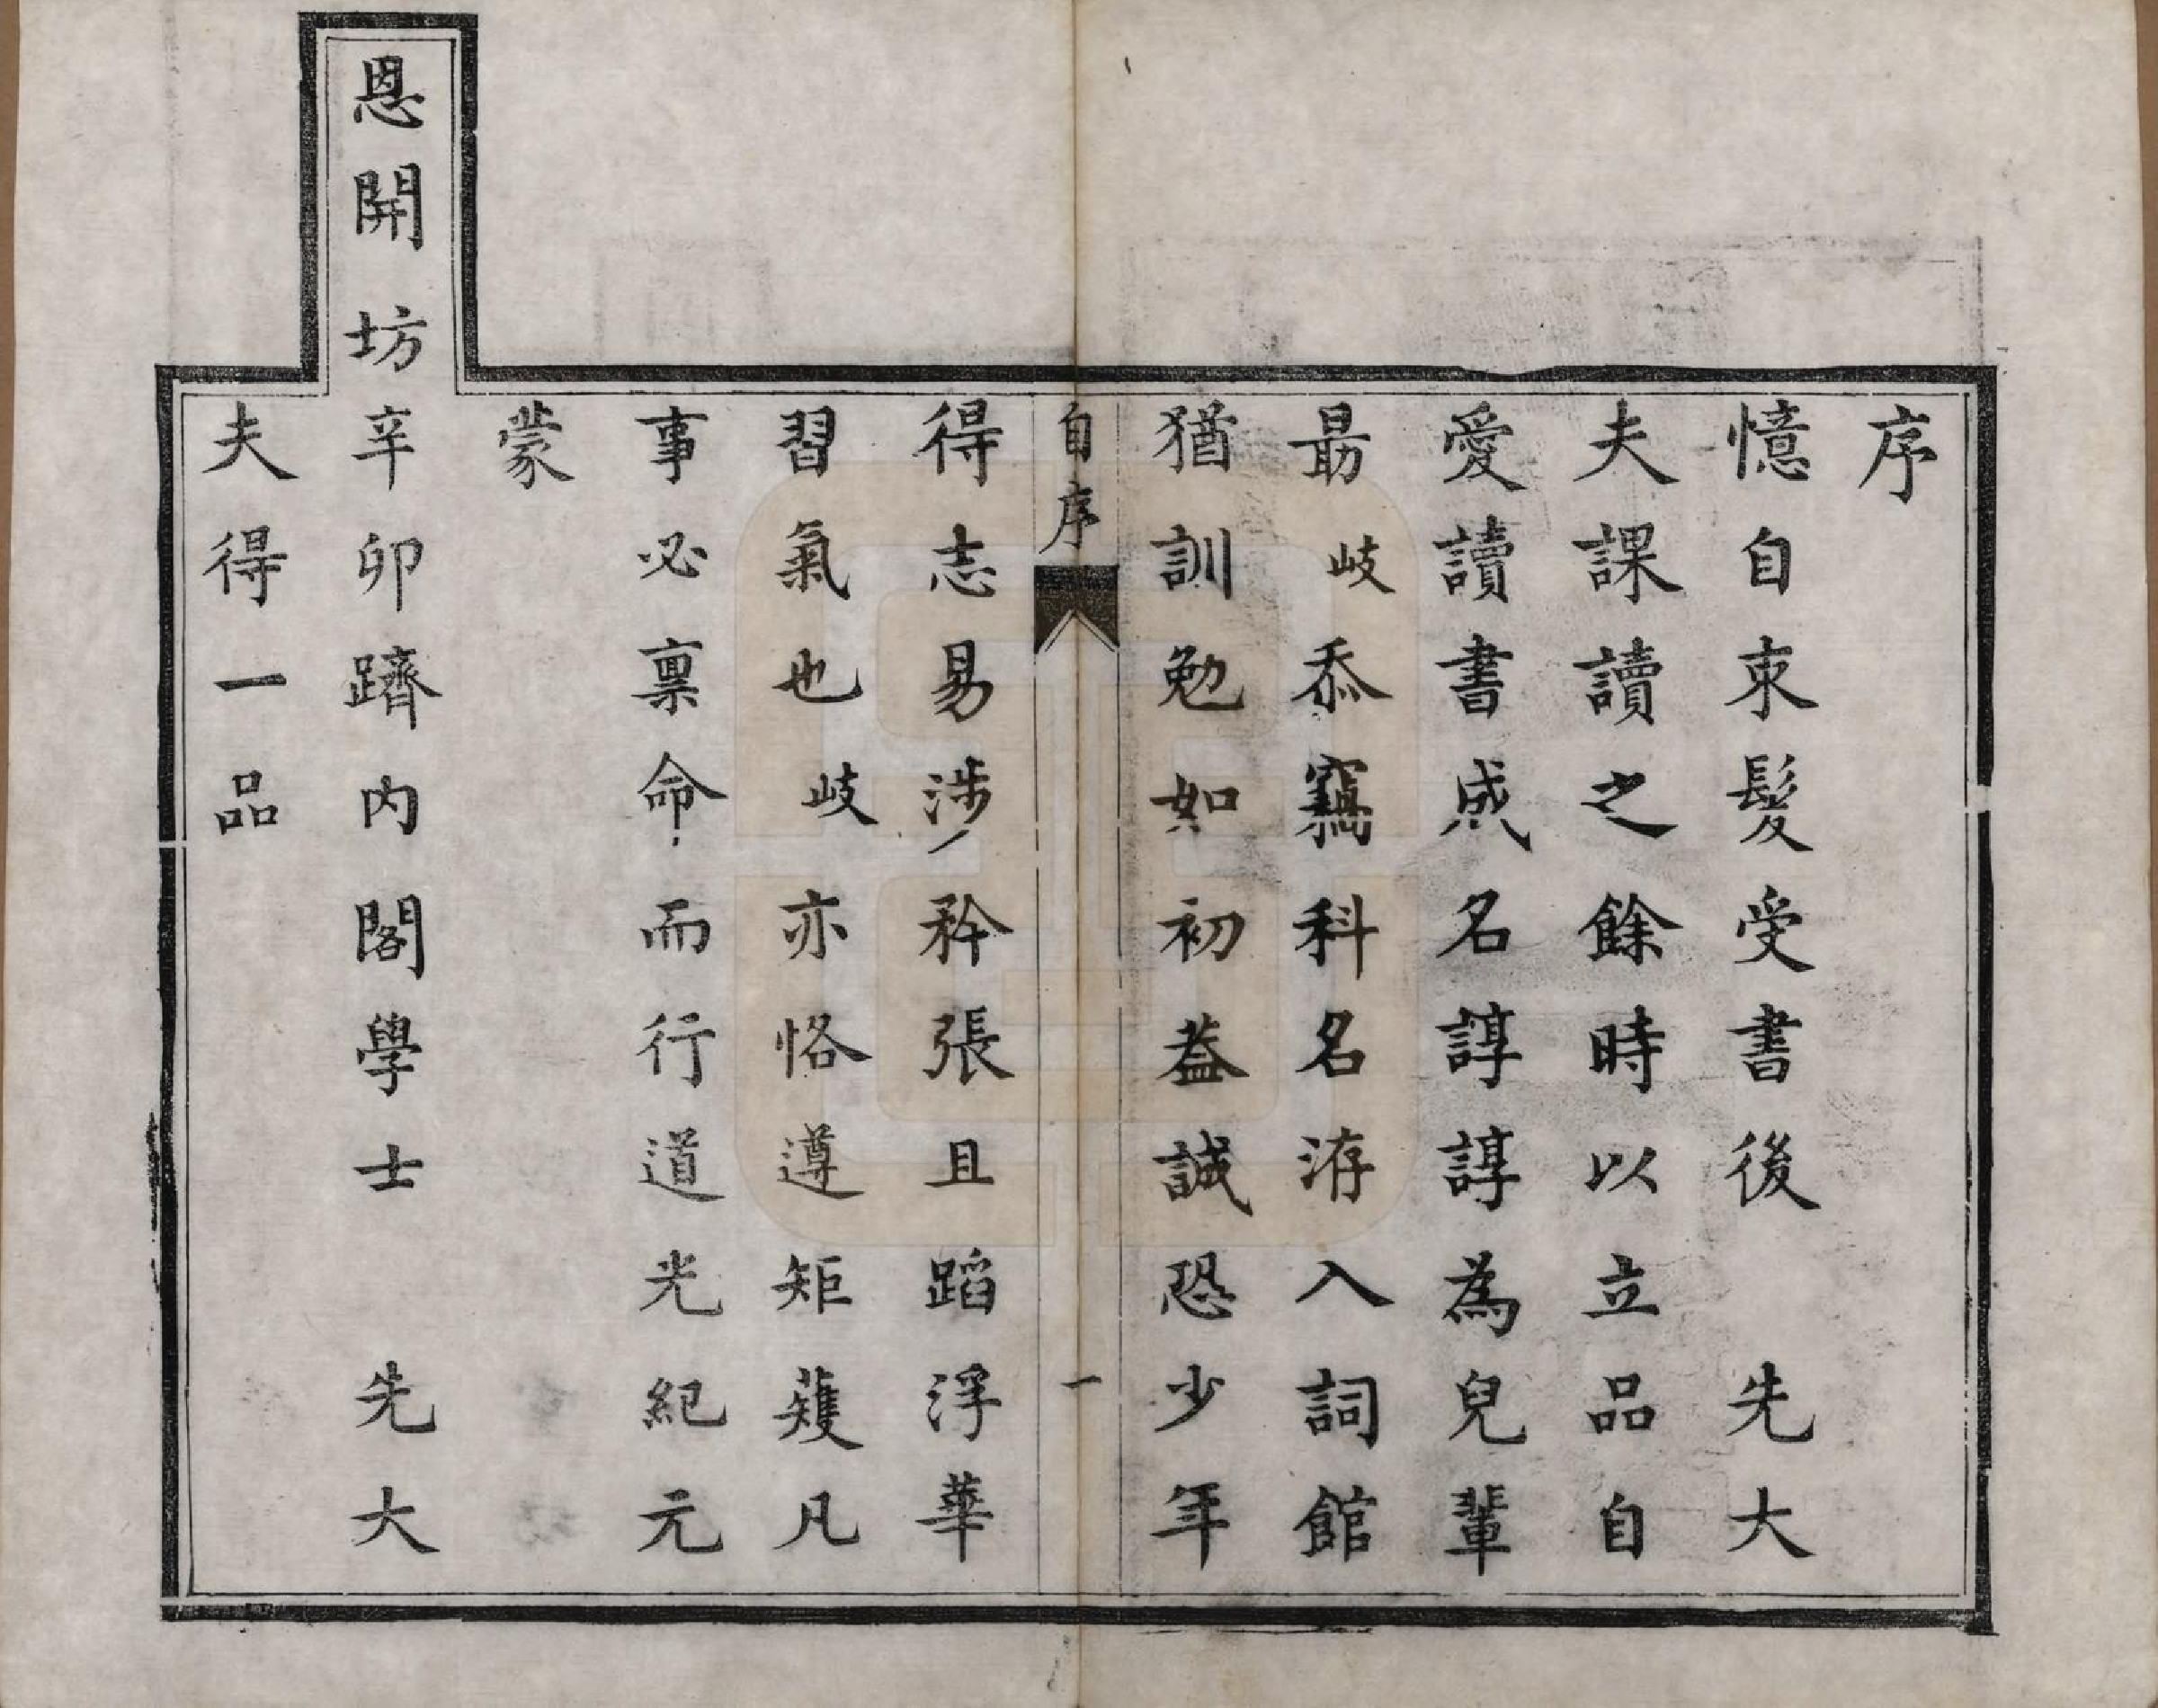 序
憶自束髮受書後　先大
夫課讀之餘時以立品自
愛讀書成名諄諄為兒輩
最岐忝竊科名洊入詞館
猶訓勉如初葢誠恐少年
自序　一
得志易涉矜張且蹈浮華
習氣也岐亦恪遵矩矱凡
事必禀命而行道光紀元
蒙
恩開坊辛卯躋內閣學士　先大
夫得一品